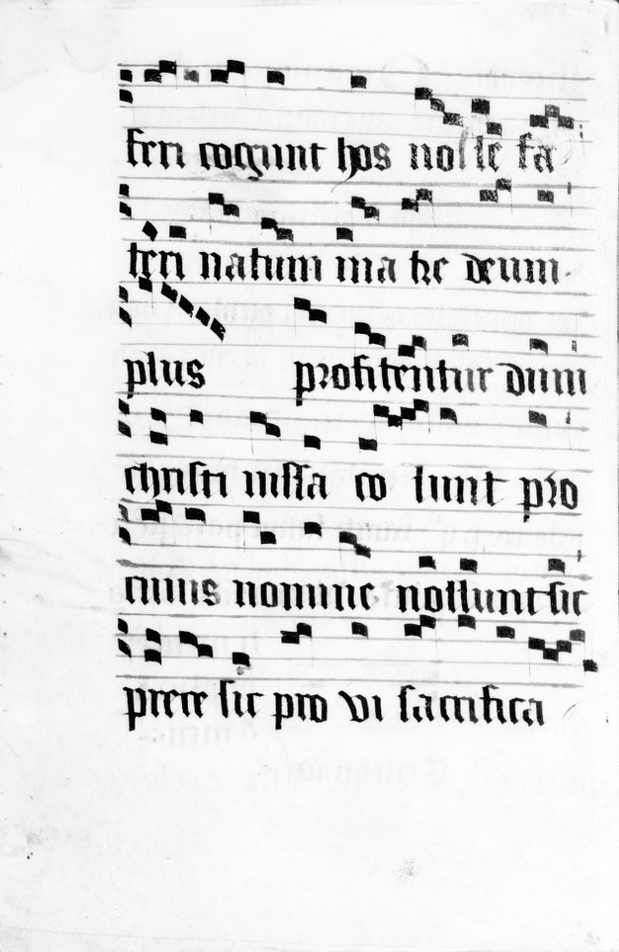 feri cogunt hos nolle fa
teri natum ma tre deum.
plus profitentur dum
christi iussa co lunt pro
cuius nomine nollunt sic
prece sic pro vi sacrifica